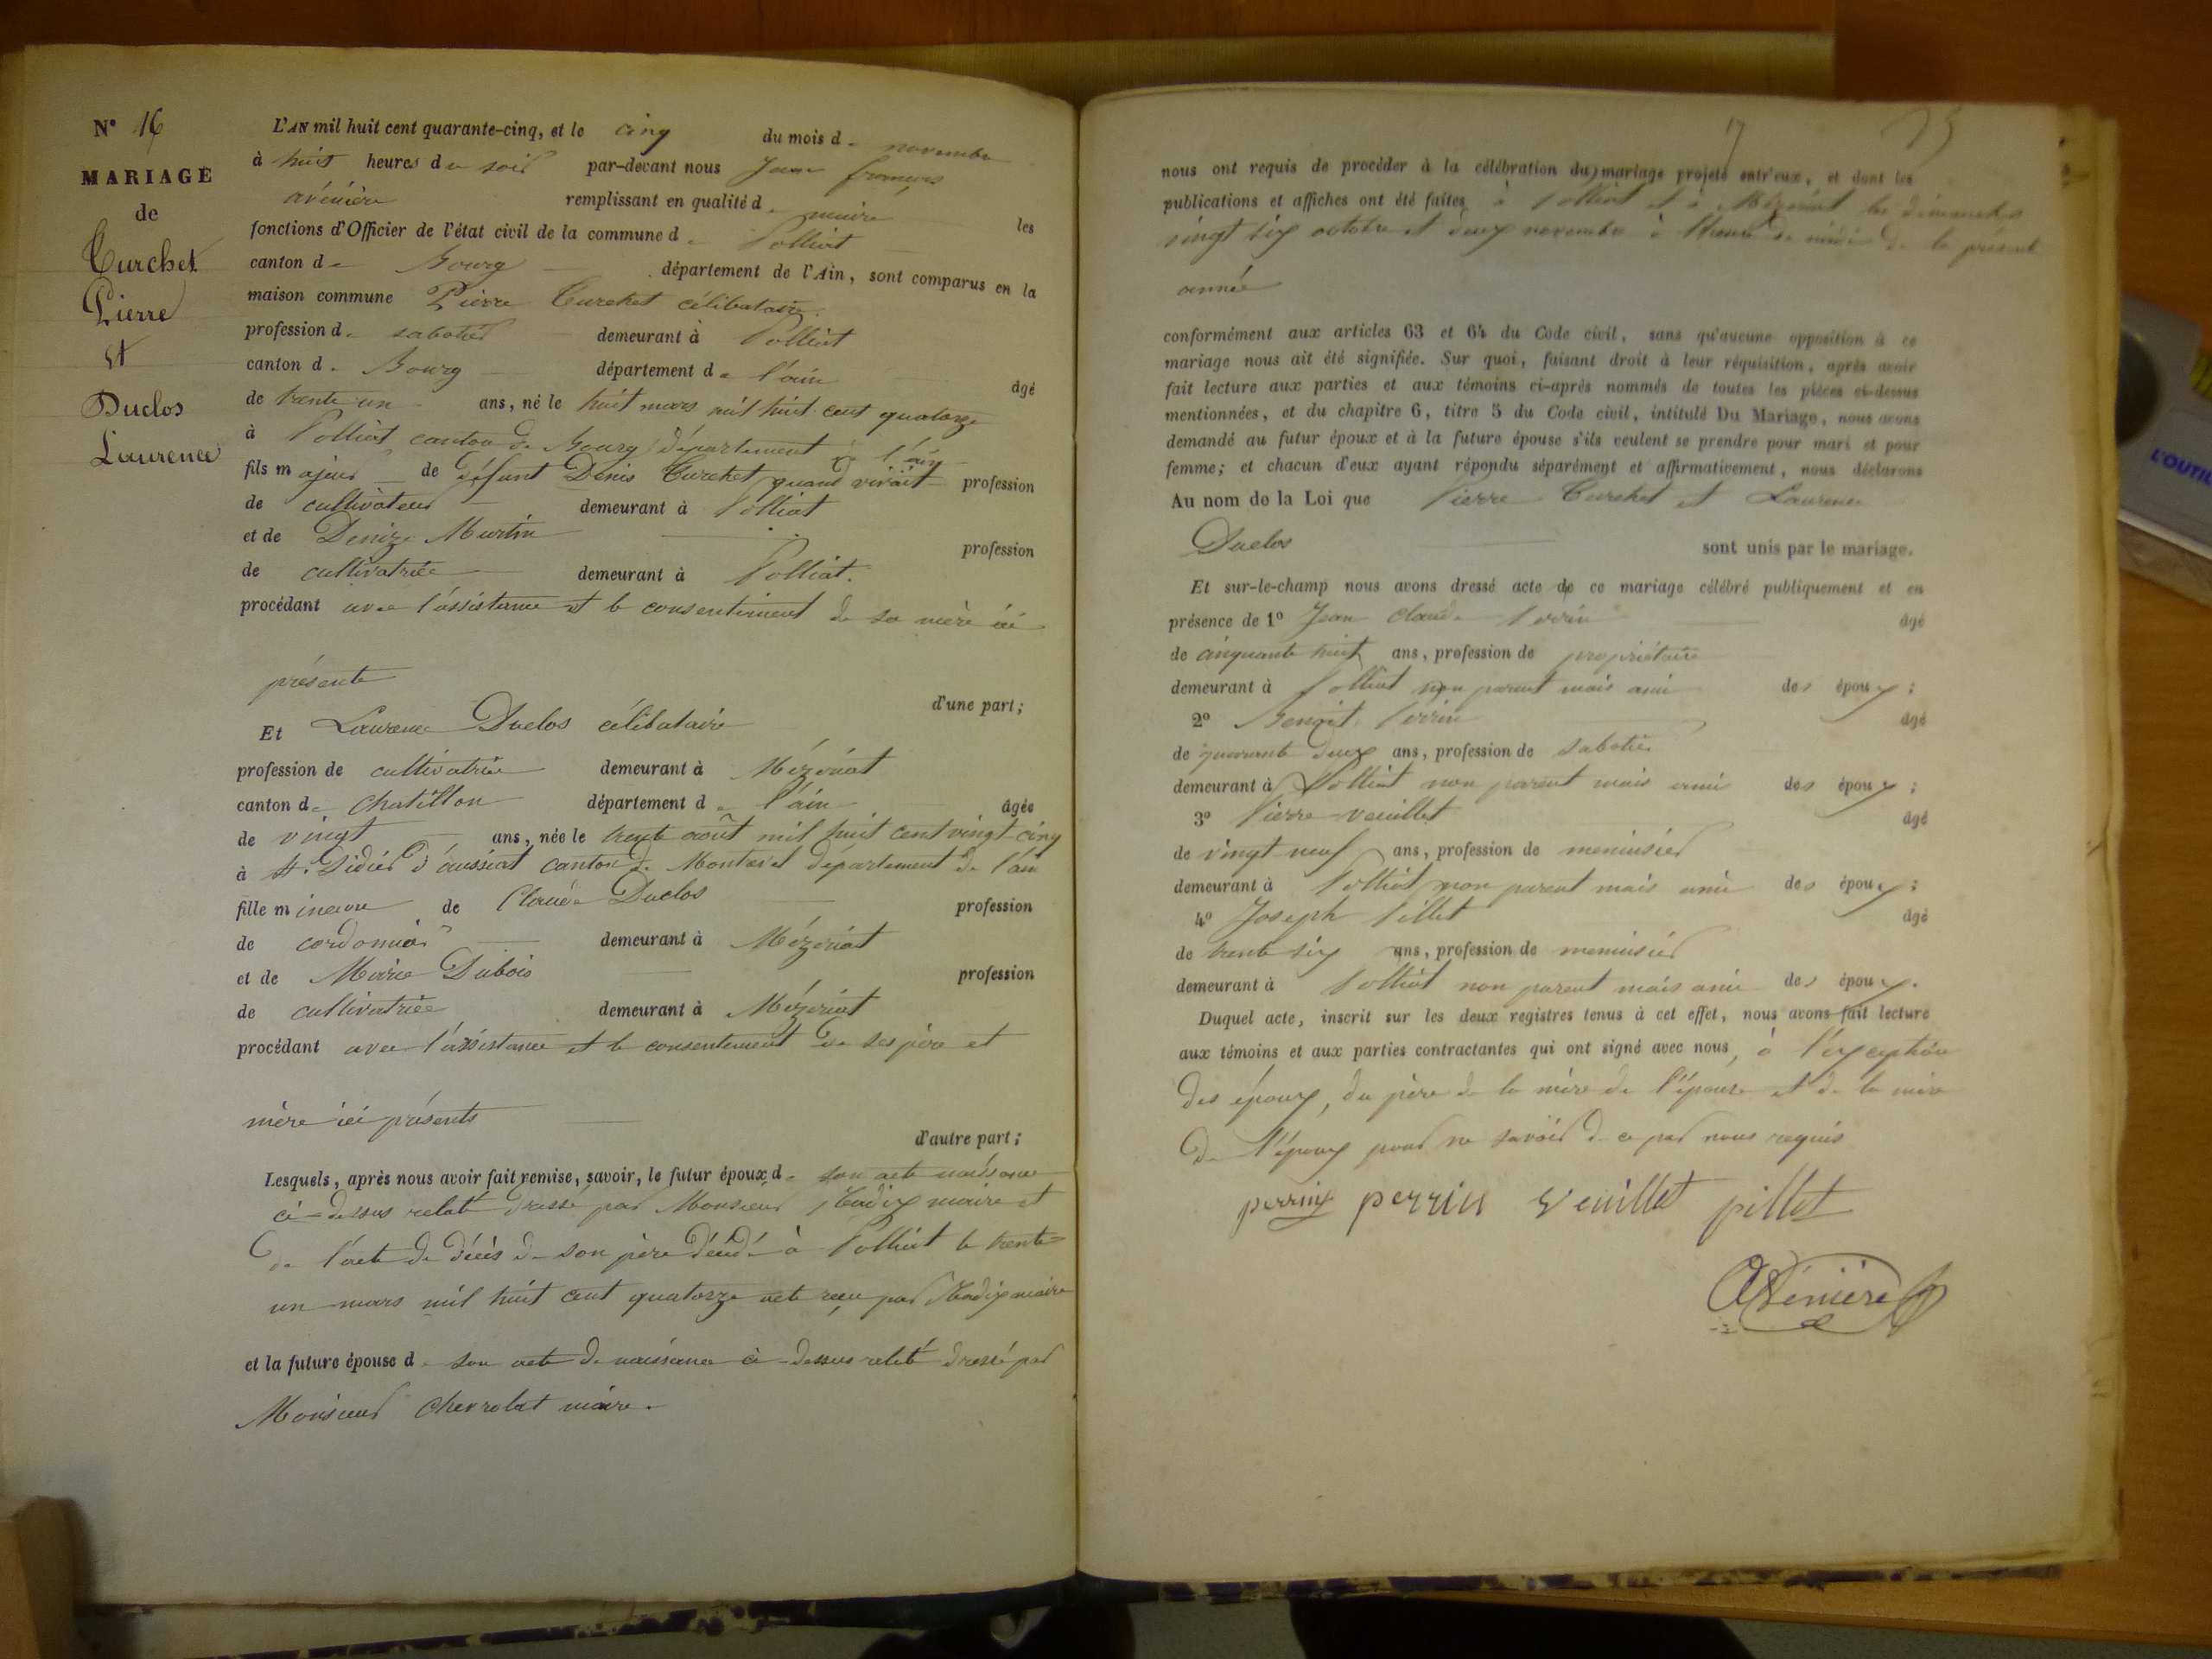 N° 16
MARIAGE
de
Curchet
Pierre
et
Duclos
Laurence
L'AN mil huit cent quarante-cinq, et le cinq du mois de novembre
à huit heures du soir par-devant nous Jean françois
avénière remplissant en qualité de maire les
fonctions d'Officier de l'état civil de la commune de Polliat
canton de Bourg département de l'Ain, sont comparus en la
maison commune Pierre Curchet célibataire
profession de sabotier demeurant à Polliat
canton de Bourg département de l'ain âgé
de trente un ans, né le huit mars mil huit cent quatorze
à Polliat canton de Bourg département de l'ain
fils majeur de défunt Denis Curchet quand vivait profession
de cultivateur demeurant à Polliat
et de Denize Martin profession
de cultivatrice demeurant à Polliat.
procédant avec l'assistance et le consentiment de sa mère ici
présente
d'une part;
Et Laurence Duclos célibataire
profession de cultivatrice demeurant à Mézériat
canton de Chatillon département de l'ain âgée
de vingt ans, née le trente août mil huit cent vingt-cinq
à St. Didier d'aussiat canton de Montrevel département de l'ain
fille mineure de Claude Duclos profession
de cordonnier demeurant à Mézériat
et de Marie Dubois profession
de cultivatrice demeurant à Mézériat
procédant avec l'assistance et le consentement de ses père et
mère ici présents
d'autre part;
Lesquels, après nous avoir fait remise, savoir, le futur époux de son acte naissance
ci-dessus relaté dressé par Monsieur maire et
de l'acte de décès de son père décédé à Polliat le trente-
un mars mil huit cent quatorze acte reçu par maire
et la future épouse de son acte de naissance ci-dessus relaté dressé par
Monsieur Chevrolat maire.
17
nous ont requis de procéder à la célébration du mariage projeté entr'eux, et dont les
publications et affiches ont été faites à Polliat et à Mézériat les dimanches
vingt six octobre et deux novembre à l'heure de midi de la présente
année
conformément aux articles 63 et 64 du Code civil, sans qu'aucune opposition à ce
mariage nous ait été signifiée. Sur quoi, faisant droit à leur réquisition, après avoir
fait lecture aux parties et aux témoins ci-après nommés de toutes les pièces ci-dessus
mentionnées, et du chapitre 6, titre 5 du Code civil, intitulé Du Mariage, nous avons
demandé au futur époux et à la future épouse s'ils veulent se prendre pour mari et pour
femme; et chacun d'eux ayant répondu séparément et affirmativement, nous déclarons
Au nom de la Loi que Pierre Curchet et Laurence
Duclos sont unis par le mariage.
Et sur-le-champ nous avons dressé acte de ce mariage célébré publiquement et en
présence de 1° Jean Claude Perrin âgé
de cinquante huit ans, profession de propriétaire
demeurant à Polliat non parent mais ami des époux;
2° Benoit Perrin âgé
de quarante deux ans, profession de sabotier
demeurant à Polliat non parent mais ami des époux;
3° Pierre veuillet âgé
de vingt-neuf ans, profession de menuisier
demeurant à Polliat non parent mais ami des époux;
4° Joseph Pillet âgé
de trente six ans, profession de menuisier
demeurant à Polliat non parent mais ami des époux.
Duquel acte, inscrit sur les deux registres tenus à cet effet, nous avons fait lecture
aux témoins et aux parties contractantes qui ont signé avec nous, à l'exception
des époux, du père de la mère de l'épouse et de la mère
de l'époux pour ne savoir de ce par nous requis
perrin perrin veuillet pillet
Avénière
L'OUTIL